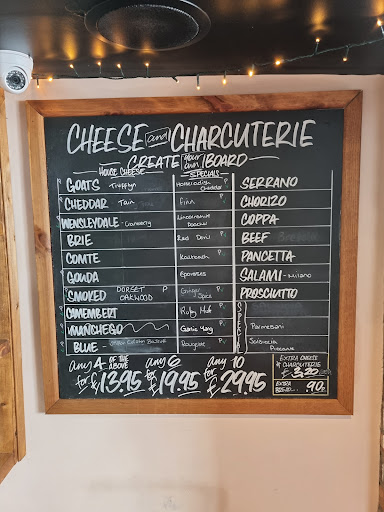 CHEESE and CHARCUTERIE
CREATE your own BOARD
HOUSE CHEESE
GOATS Truffyn
CHEDDAR Tain
WENSLEYDALE - Cranberry
BRIE
COMTE
GOUDA
SMOKED DORSET OAKWOOD P
CAMEMBERT
MANCHEGO
BLUE
SPECIALS
Horseradish Cheddar P
Finn P
Lincolnshire Poacher
Red Devil P
Epoisses
Ginger Spice P
Ruby Mist P
Garlic Yarg P
SERRANO
CHORIZO
COPPA
BEEF
PANCETTA
SALAMI - Milano
PROSCIUTTO
SPECIALS
Parmesan
any 4 OF THE ABOVE for £13.95
any 6 for £19.95
any 10 for £29.95
EXTRA CHEESE & CHARCUTERIE £3.20
EXTRA BREAD... .90p